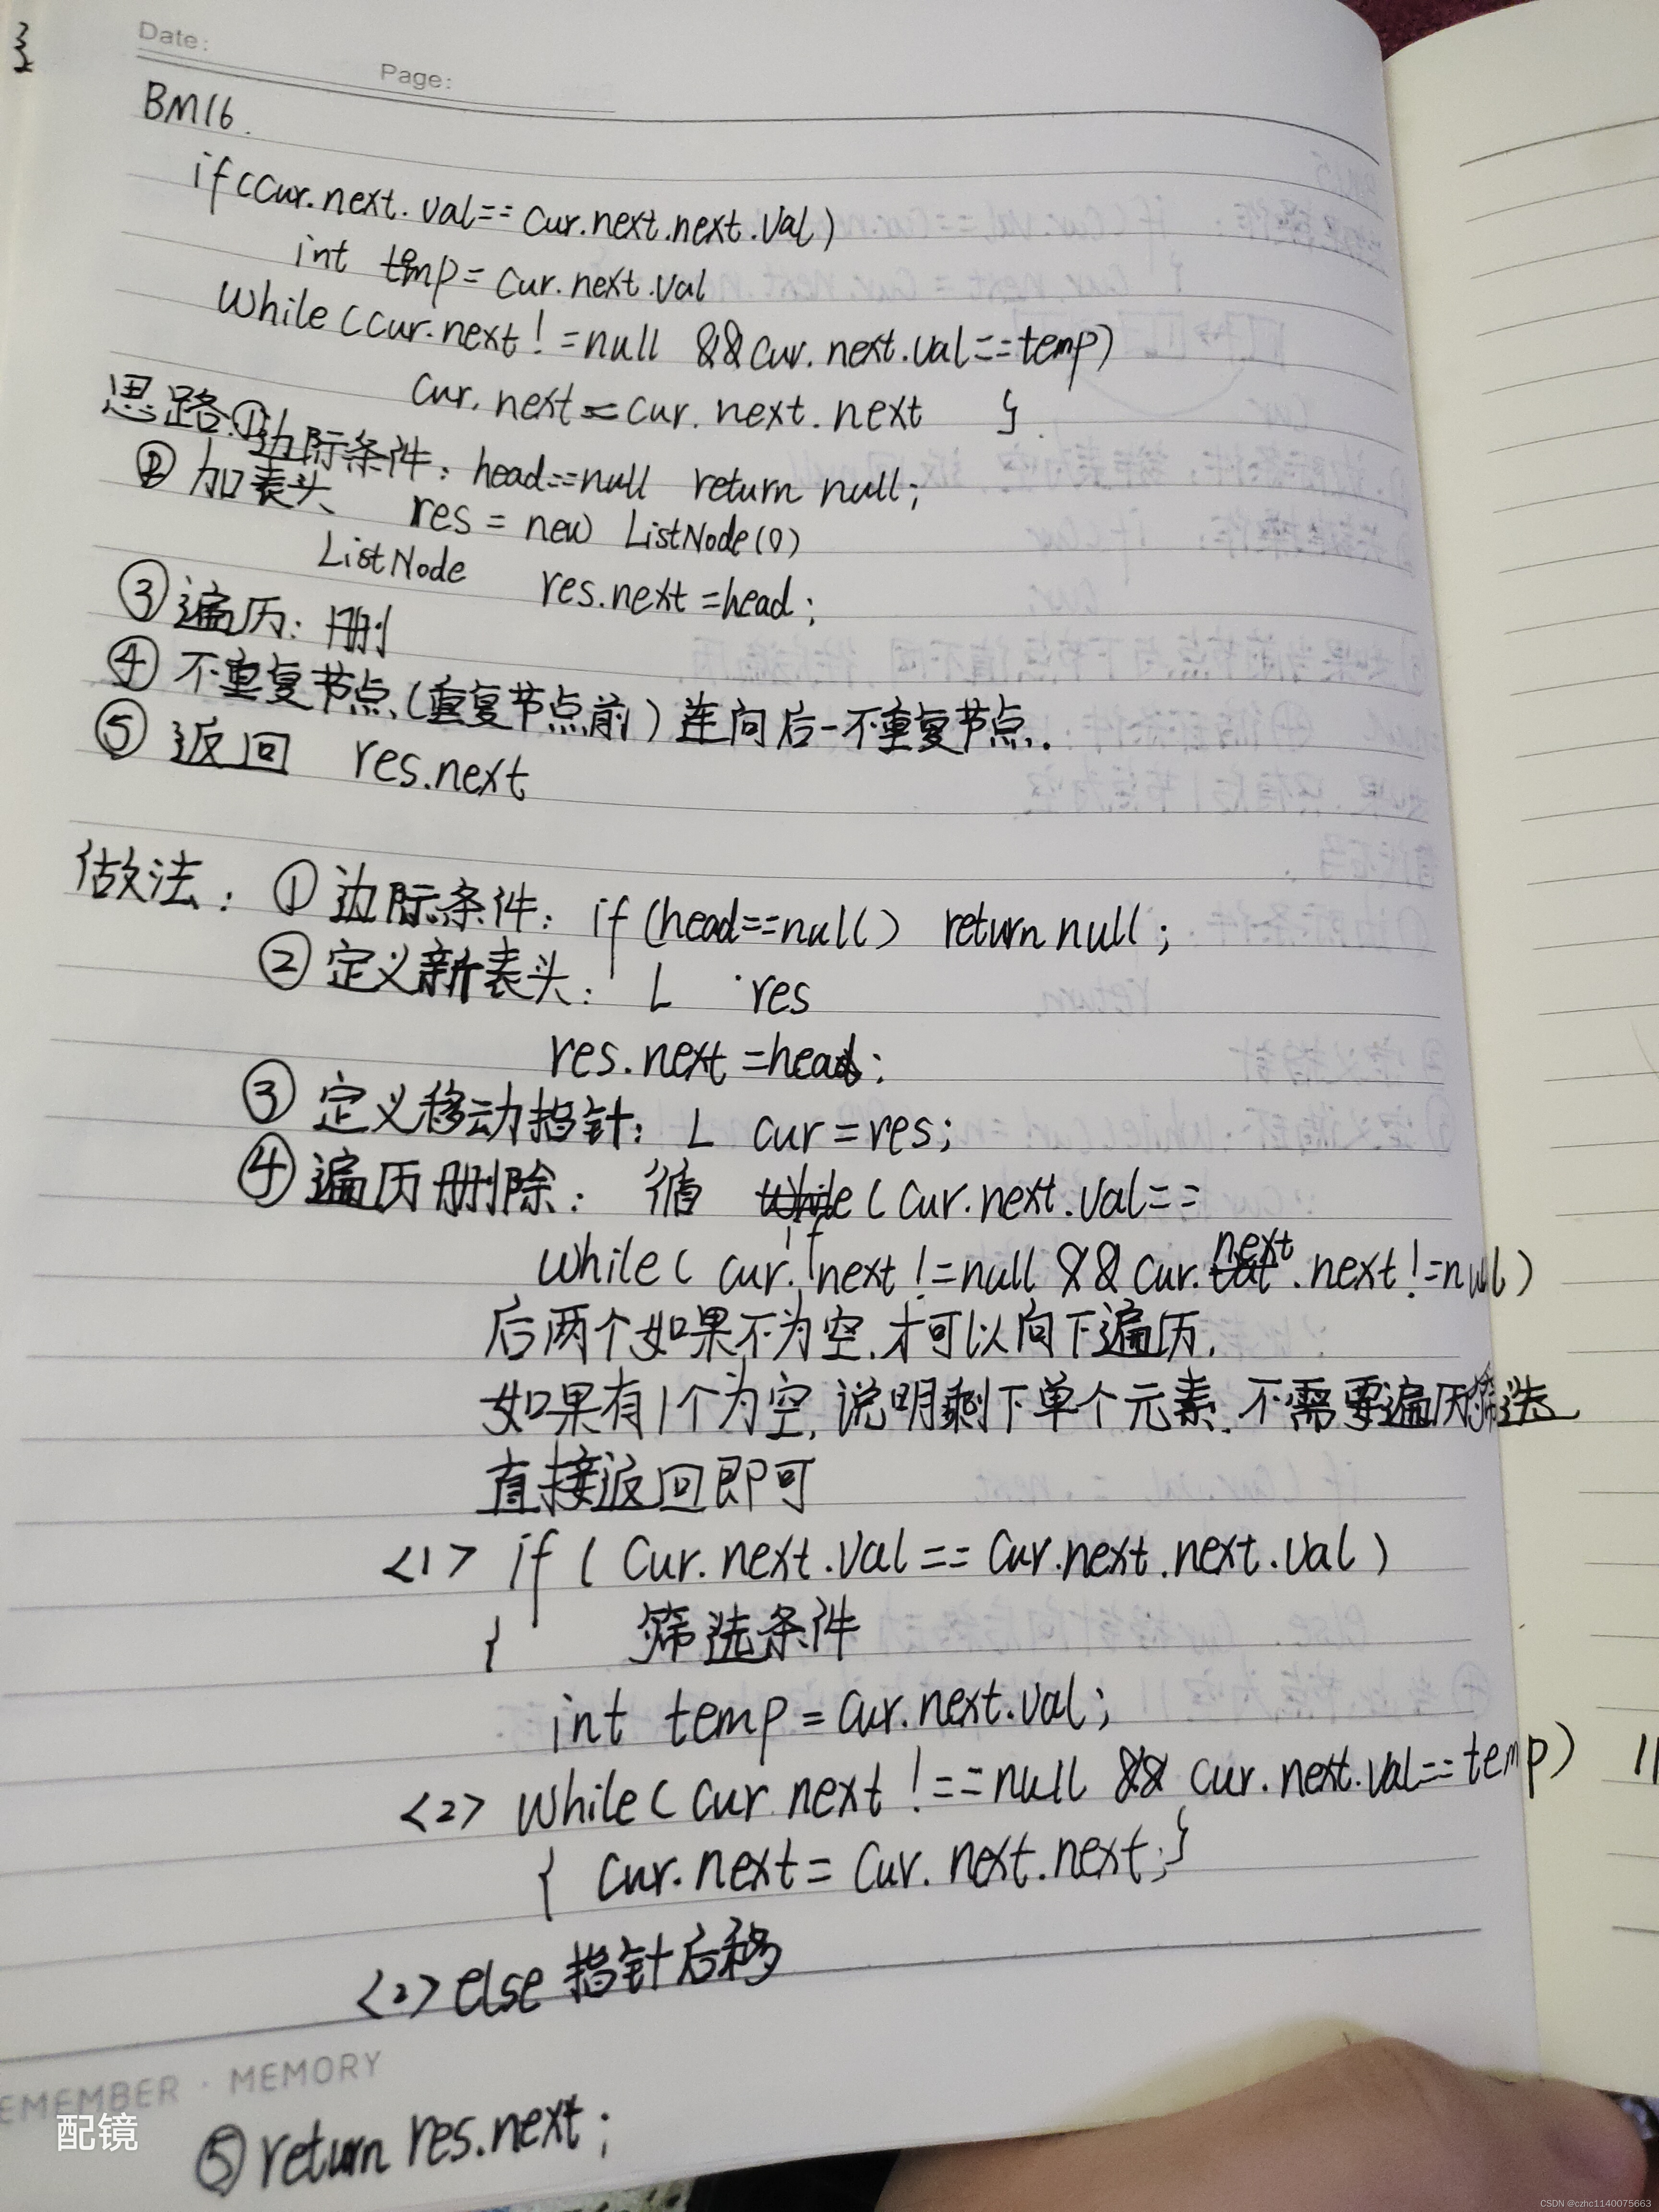 Date:
Page:
BM16.
if(cur.next.val==cur.next.next.val)
int temp=cur.next.val
while(cur.next!=null &&cur.next.val==temp)
cur.next=cur.next.next }
思路:①边际条件:head==null return null;
②加表头 res=new ListNode(0)
ListNode res.next=head;
③遍历:删
④不重复节点(重复节点前)连向后一不重复节点.
⑤返回 res.next
做法:①边际条件:if(head==null) return null;
②定义新表头:L res
res.next=head;
③定义移动指针:L cur=res;
④遍历删除:循 while(cur.next.val==
if
while(cur.next!=null && cur.next.next!=null)
后两个如果不为空.才可以向下遍历.
如果有1个为空,说明剩下单个元素.不需要遍历筛选
直接返回即可
<1> if(cur.next.val==cur.next.next.val)
{ 筛选条件
int temp=cur.next.val;
<2> while(cur next!==null && cur.next.val==temp) 11
{ cur.next=cur.next.next;}
<2>else指针后移
EMEMBER · MEMORY
配镜
⑤return res.next;
CSDN @czhc1140075663